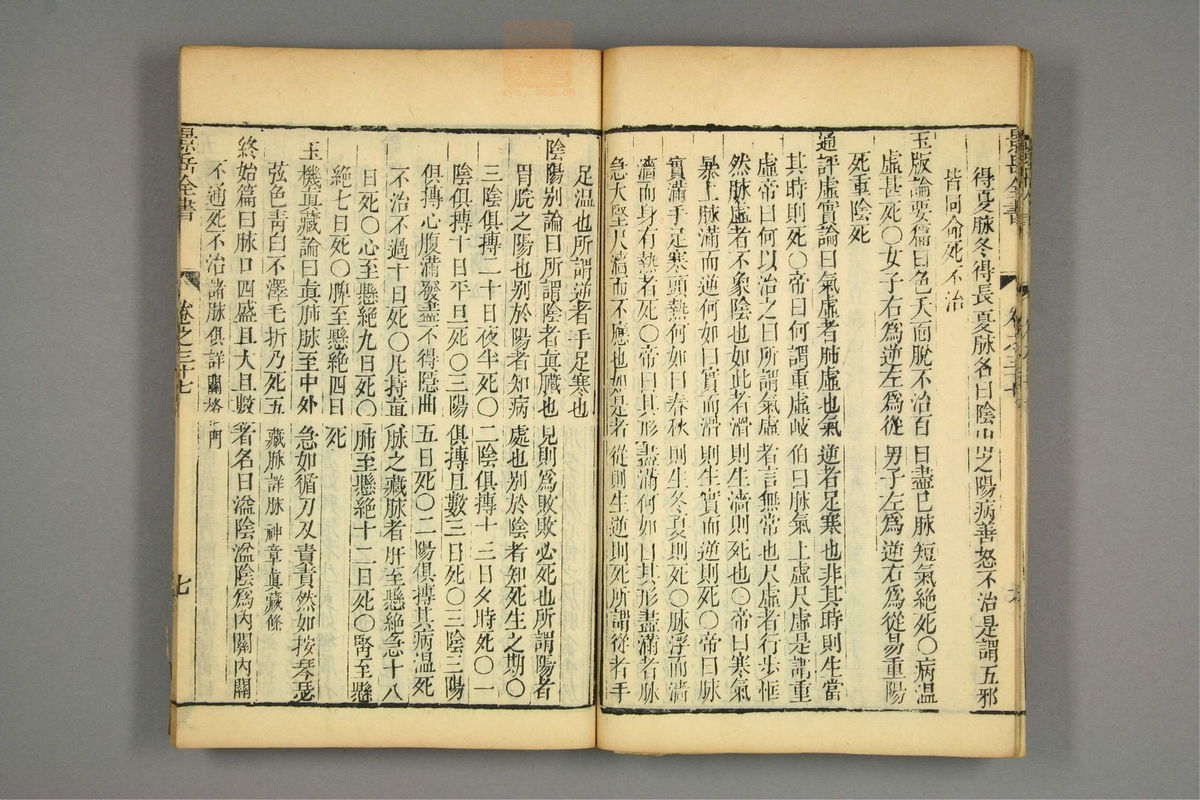 景岳全書
卷之三十七
六
得夏脉冬得長夏脉名曰陰出之陽病善怒不治是謂五邪
皆同命死不治
玉版論要篇曰色夭面脫不治百日盡已脉短氣絶死〇病温
虛甚死〇女子右爲逆左爲從男子左爲逆右爲從易重陽
死重陰死
通評虛實論曰氣虛者肺虛也氣逆者足寒也非其時則生當
其時則死〇帝曰何謂重虛歧伯曰脉氣上虛尺虛是謂重
虛帝曰何以治之曰所謂氣虛者言無常也尺虛者行步恇
然脉虛者不象陰也如此者滑則生濇則死也〇帝曰寒氣
暴上脉滿而逆何如曰實而滑則生實而逆則死〇帝曰脉
實滿手足寒頭熱何如曰春秋則生冬夏則死〇脉浮而濇
濇而身有熱者死〇帝曰其形盡滿何如曰其形盡滿者脉
急大堅尺濇而不應也如是者從則生逆則死所謂從者手
足温也所謂逆者手足寒也
陰陽别論曰所謂陰者眞臟也見則爲敗敗必死也所謂陽者
胃脘之陽也别於陽者知病處也别於陰者知死生之期〇
三陰俱摶二十日夜半死〇二陰俱摶十三日夕時死〇一
陰俱摶十日平旦死〇三陽俱摶且數三日死〇三陰三陽
俱摶心腹滿發盡不得隱曲五日死〇二陽俱摶其病温死
不治不過十日死〇凡持眞脉之藏脉者肝至懸絶急十八
日死〇心至懸絶九日死〇肺至懸絶十二日死〇腎至懸
絶七日死〇脾至懸絶四日死
玉機眞藏論曰眞肺脉至中外急如循刀刃責責然如按琴瑟
弦色靑白不澤毛折乃死五藏脉詳脉神章眞藏條
終始篇曰脉口四盛且大且數者名曰溢陰溢陰爲內關內關
不通死不治諸脉俱詳關格門
景岳全書
卷之三十七
七